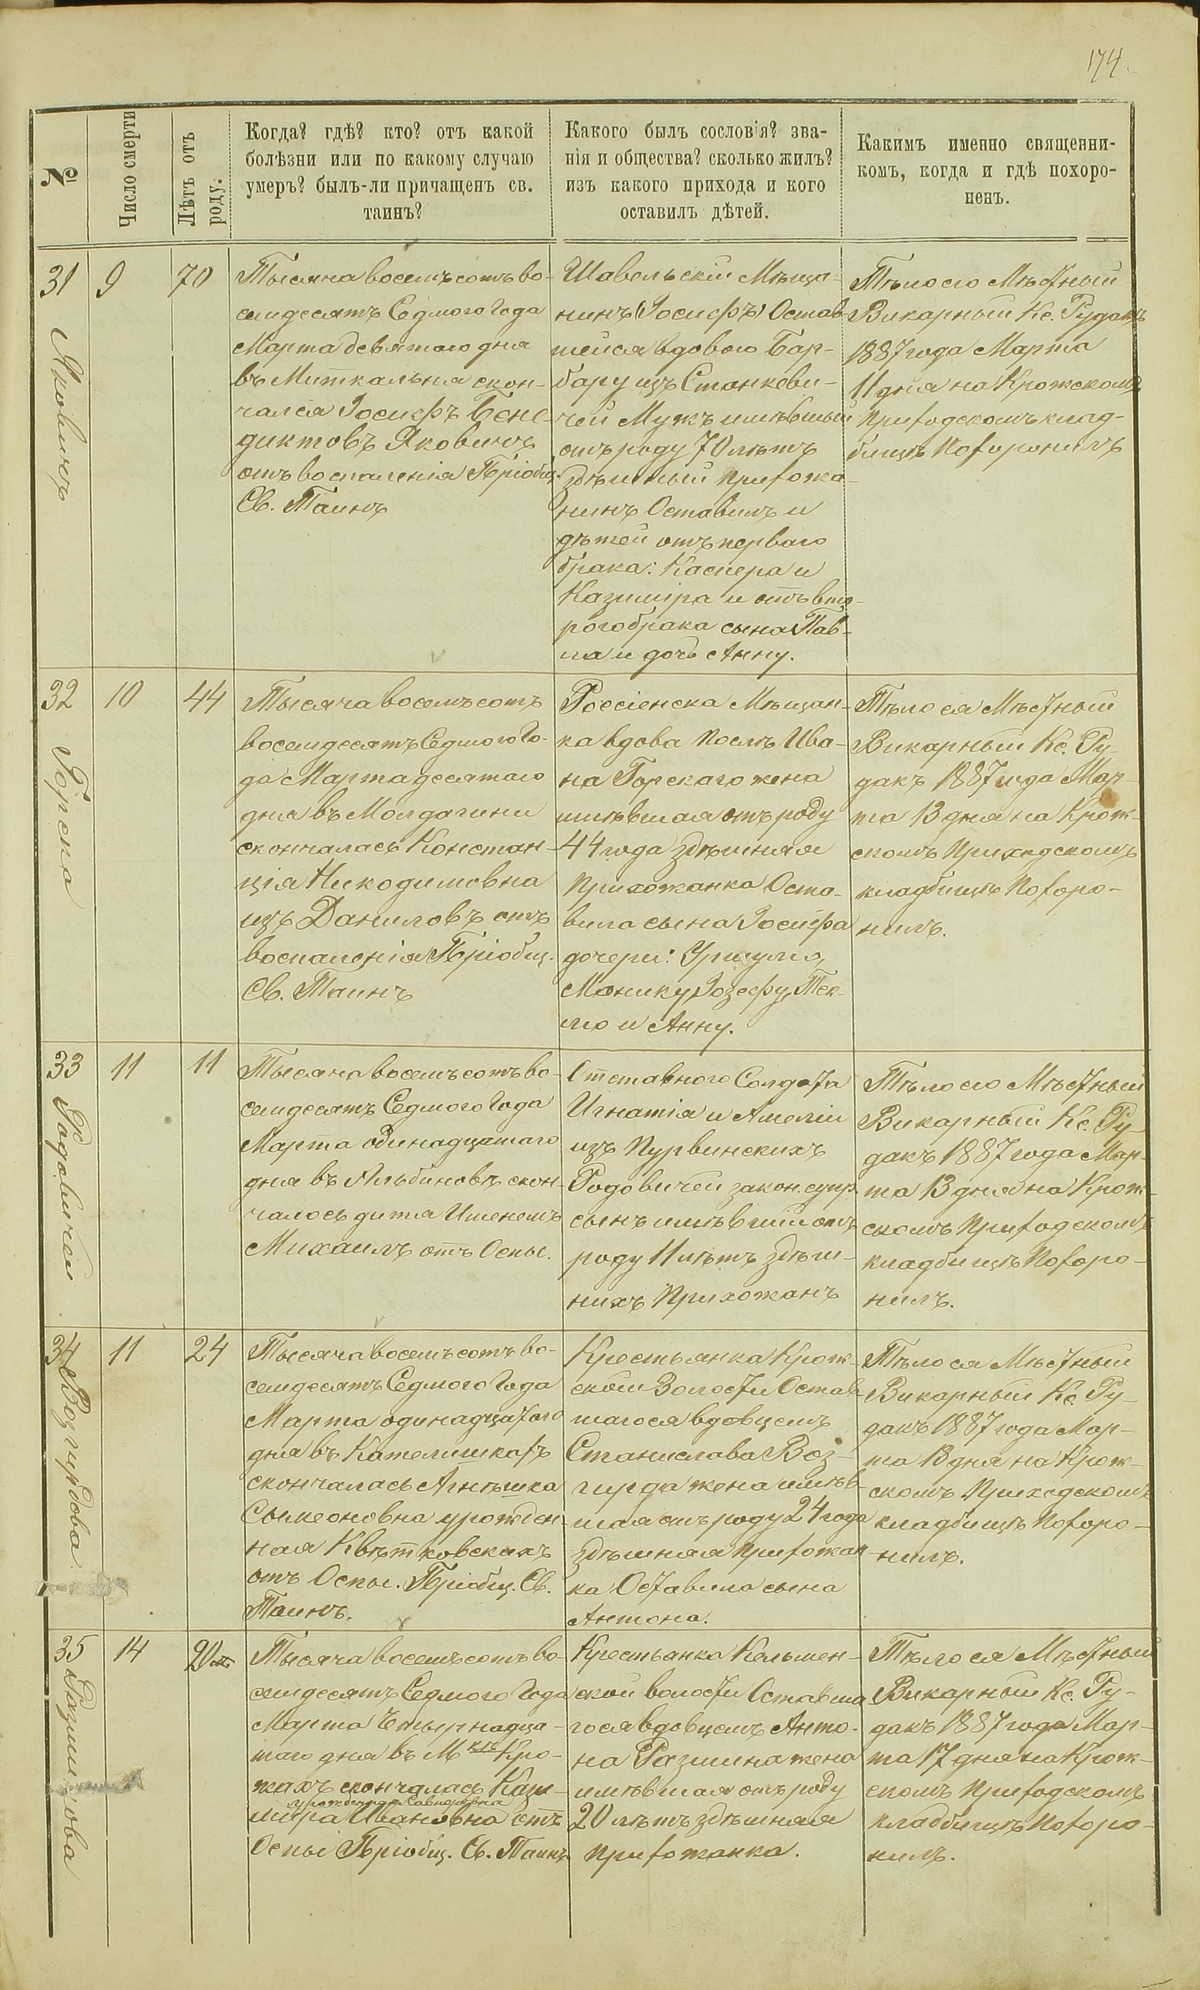 174.
№
Число смерти
Лѣтъ отъ
роду.
Когда? гдѣ? кто? отъ какой
болѣзни или по какому случаю
умеръ? былъ-ли причащенъ св.
таинъ?
Какого былъ сословія? зва-
нія и общества? сколько жилъ?
изъ какого прихода и кого
оставилъ дѣтей.
Какимъ именно священни-
комъ, когда и гдѣ похоро-
ненъ.
31
Яковичъ
9
70
Тысяча восемьсотъ во-
семдесятъ Седмого Года
Марта девятого дня
въ Миткальня скон-
чался Іосифъ Бене-
диктовъ Яковичъ
отъ воспаленія Пріобщ.
Св. Таинъ
Шавельскій Мѣща-
нинъ (Іосифъ) Остав-
шейся вдовою Бар-
бару изъ Станкеви-
чей Мужъ имѣвшый
отъ роду 70 лѣтъ
здѣшный прихожа-
нинъ Оставилъ и
дѣтей отъ перваго
брака: Каспера и
Казиміра и отъ вто-
рого брака сына Пав-
ла и дочь Анну.
Тѣло сіо Мѣстный
Викарный Кс. Рудакъ
1887 года Марта
11 дня на Крожскомъ
Приходскомъ клад-
бищѣ Похоронилъ
32
Горска
10
44
Тысяча восемьсотъ
восемдесятъ Седмого Го-
да Марта десятаго
дня въ Молдагини
скончалась Констан-
ція Никодимовна
изъ Даниловъ отъ
воспаленія Пріобщ.
Св. Таинъ
Россіенска Мѣщан-
ка вдова послѣ Ива-
на Горскаго жена
имѣвшая отъ роду
44 года здѣшняя
Прихожанка Оста-
вила сына Іосифа
дочери: Уршулю,
Монику, Іозефу, Тек-
лю и Анну.
Тѣло ся Мѣстный
Викарный Кс. Ру-
дакъ 1887 года Мар-
та 13 дня на Крож-
скомъ Приходскомъ
кладбищѣ Похоро-
нилъ.
33
Родовичей
11
11
Тысяча восемьсотъ во-
семдесятъ Седмого Года
Марта одинадцатаго
дня въ Альбиновѣ скон-
чалось дитя Именемъ
Михаилъ отъ Оспы.
Отставного Солдата
Игнатія и Амеліи
изъ Пурвинскихъ
Родовичей закон. супр.
сынъ имѣвшій отъ
роду 11 лѣтъ здѣш-
нихъ Прихожанъ
Тѣло сіо Мѣстный
Викарный Кс. Ру-
дакъ 1887 года Мар-
та 13 дня на Крож-
скомъ Приходскомъ
кладбищѣ Похоро-
нилъ.
34
Возгирдова
11
24
Тысяча восемьсотъ во-
семдесятъ Седмого Года
Марта одинадцатого
дня въ Кателишкахъ
скончалась Агнѣшка
Сымеоновна урожден-
ная Квѣтковскихъ
отъ Оспы. Пріобщ. Св.
Таинъ.
Крестьянка Крож-
ской Волости Остав-
шагося вдовцемъ
Станислава Воз-
гирда жена имѣв-
шая отъ роду 24 года
здѣшняя прихожан-
ка Оставила сына
Антона.
Тѣло ся Мѣстный
Викарный Кс. Ру-
дакъ 1887 года Мар-
та 13 дня на Крож-
скомъ Приходскомъ
кладбищѣ Похоро-
нилъ.
35
14
20
Тысяча восемьсотъ во-
семдесятъ Седмого Года
Марта Четырнадца-
таго дня въ М Кро-
жахъ скончалась Кази-
міра Ивановна отъ
Оспы Пріобщ. Св. Таинъ
Крестьянка Кельмен-
ской волости Оставша-
гося вдовцемъ Анто-
на Размина жена
имѣвшая отъ роду
20 лѣтъ здѣшняя
прихожанка.
Тѣло ся Мѣстный
Викарный Кс. Ру-
дакъ 1887 года Мар-
та 17 дня на Крож-
скомъ Приходскомъ
кладбищѣ Похоро-
нилъ.